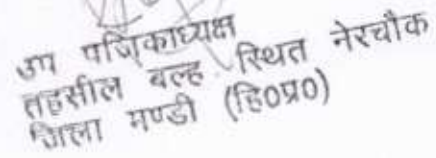 उप पंजिकाध्यक्ष
तहसील बल्ह स्थित नेरचौक
जिला मण्डी (हि०प्र०)